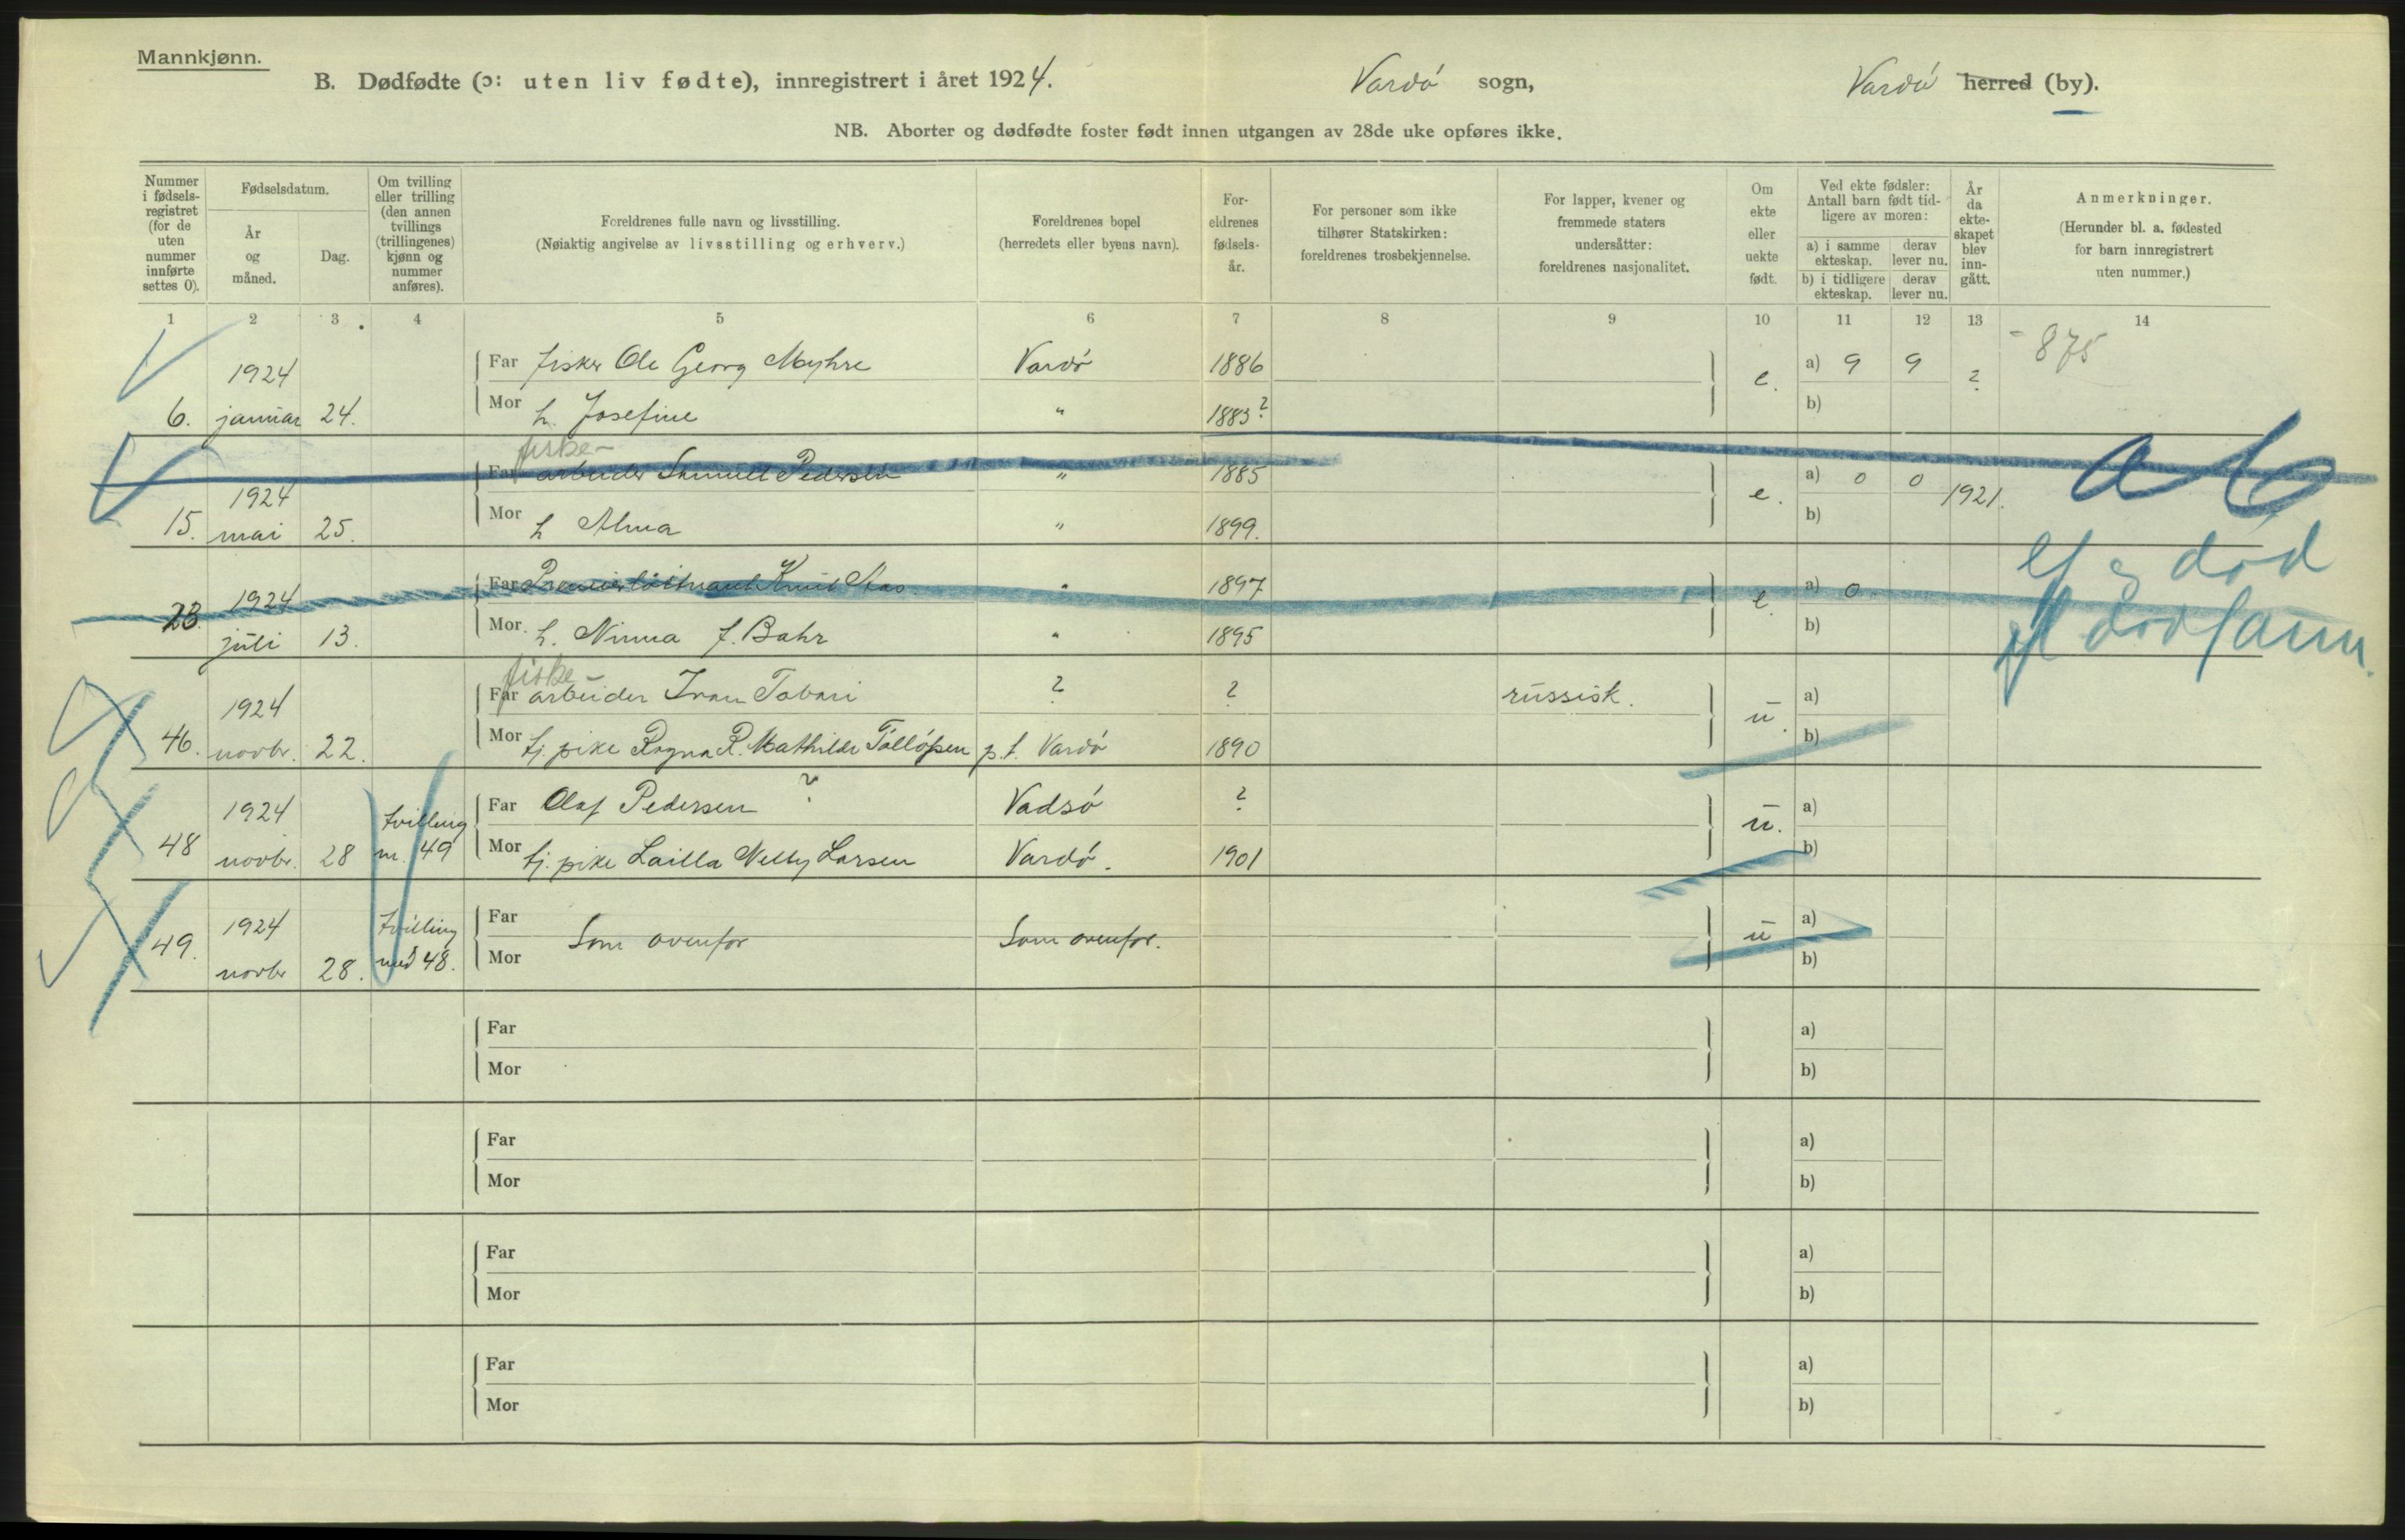 Mannkjønn.
B. Dødfødte (ɔ: uten liv fødte), innregistrert i året 1924. Vardø sogn, Vardø herred (by).
NB. Aborter og dødfødte foster født innen utgangen av 28de uke opføres ikke.
Nummer i fødsels-registret (for de uten nummer innførte settes 0).
Fødselsdatum.
År og måned.
Dag.
Om tvilling eller trilling (den annen tvillings (trillingenes) kjønn og nummer anføres).
Foreldrenes fulle navn og livsstilling.
(Nøiaktig angivelse av livsstilling og erhverv.)
Foreldrenes bopel
(herredets eller byens navn).
For-eldrenes fødsels-år.
For personer som ikke tilhører Statskirken: foreldrenes trosbekjennelse.
For lapper, kvener og fremmede staters undersåtter: foreldrenes nasjonalitet.
Om ekte eller uekte født.
Ved ekte fødsler: Antall barn født tid-ligere av moren:
a) i samme ekteskap. derav lever nu.
b) i tidligere ekteskap. derav lever nu.
År da ekte-skapet blev inn-gått.
Anmerkninger.
(Herunder bl. a. fødested for barn innregistrert uten nummer.)
1 2 3 4 5 6 7 8 9 10 11 12 13 14
1924 Far fisker Ole Georg Myhre Vardø 1886 e. a) 9 9 ? 875
6. januar 24. Mor h. Josefine " 1883? b)
fiske-
1924 Far arbeider Samuel Pedersen " 1885 e. a) 0 0 1921.
15. mai 25. Mor h Alma " 1899. b)
1924 Far Premierløitnant Knut " 1897 e. a) 0
23. juli 13. Mor h. Ninna f. Bahr " 1895 b)
død
fiske-
1924 Far arbeider Ivan Tobari ? ? russisk. u. a)
46. novbr. 22. Mor tj. pike Ragna R. Mathilde p.t. Vardø 1890 b)
1924 tvilling Far Olaf Pedersen ? Vadsø ? u. a)
48 novbr. 28 m. 49 Mor tj. pike Lailla Nelly Larsen Vardø. 1901 b)
1924 tvilling Far Som ovenfor Som ovenfor. u a)
49. novbr 28. med 48. Mor b)
Far a)
Mor b)
Far a)
Mor b)
Far a)
Mor b)
Far a)
Mor b)